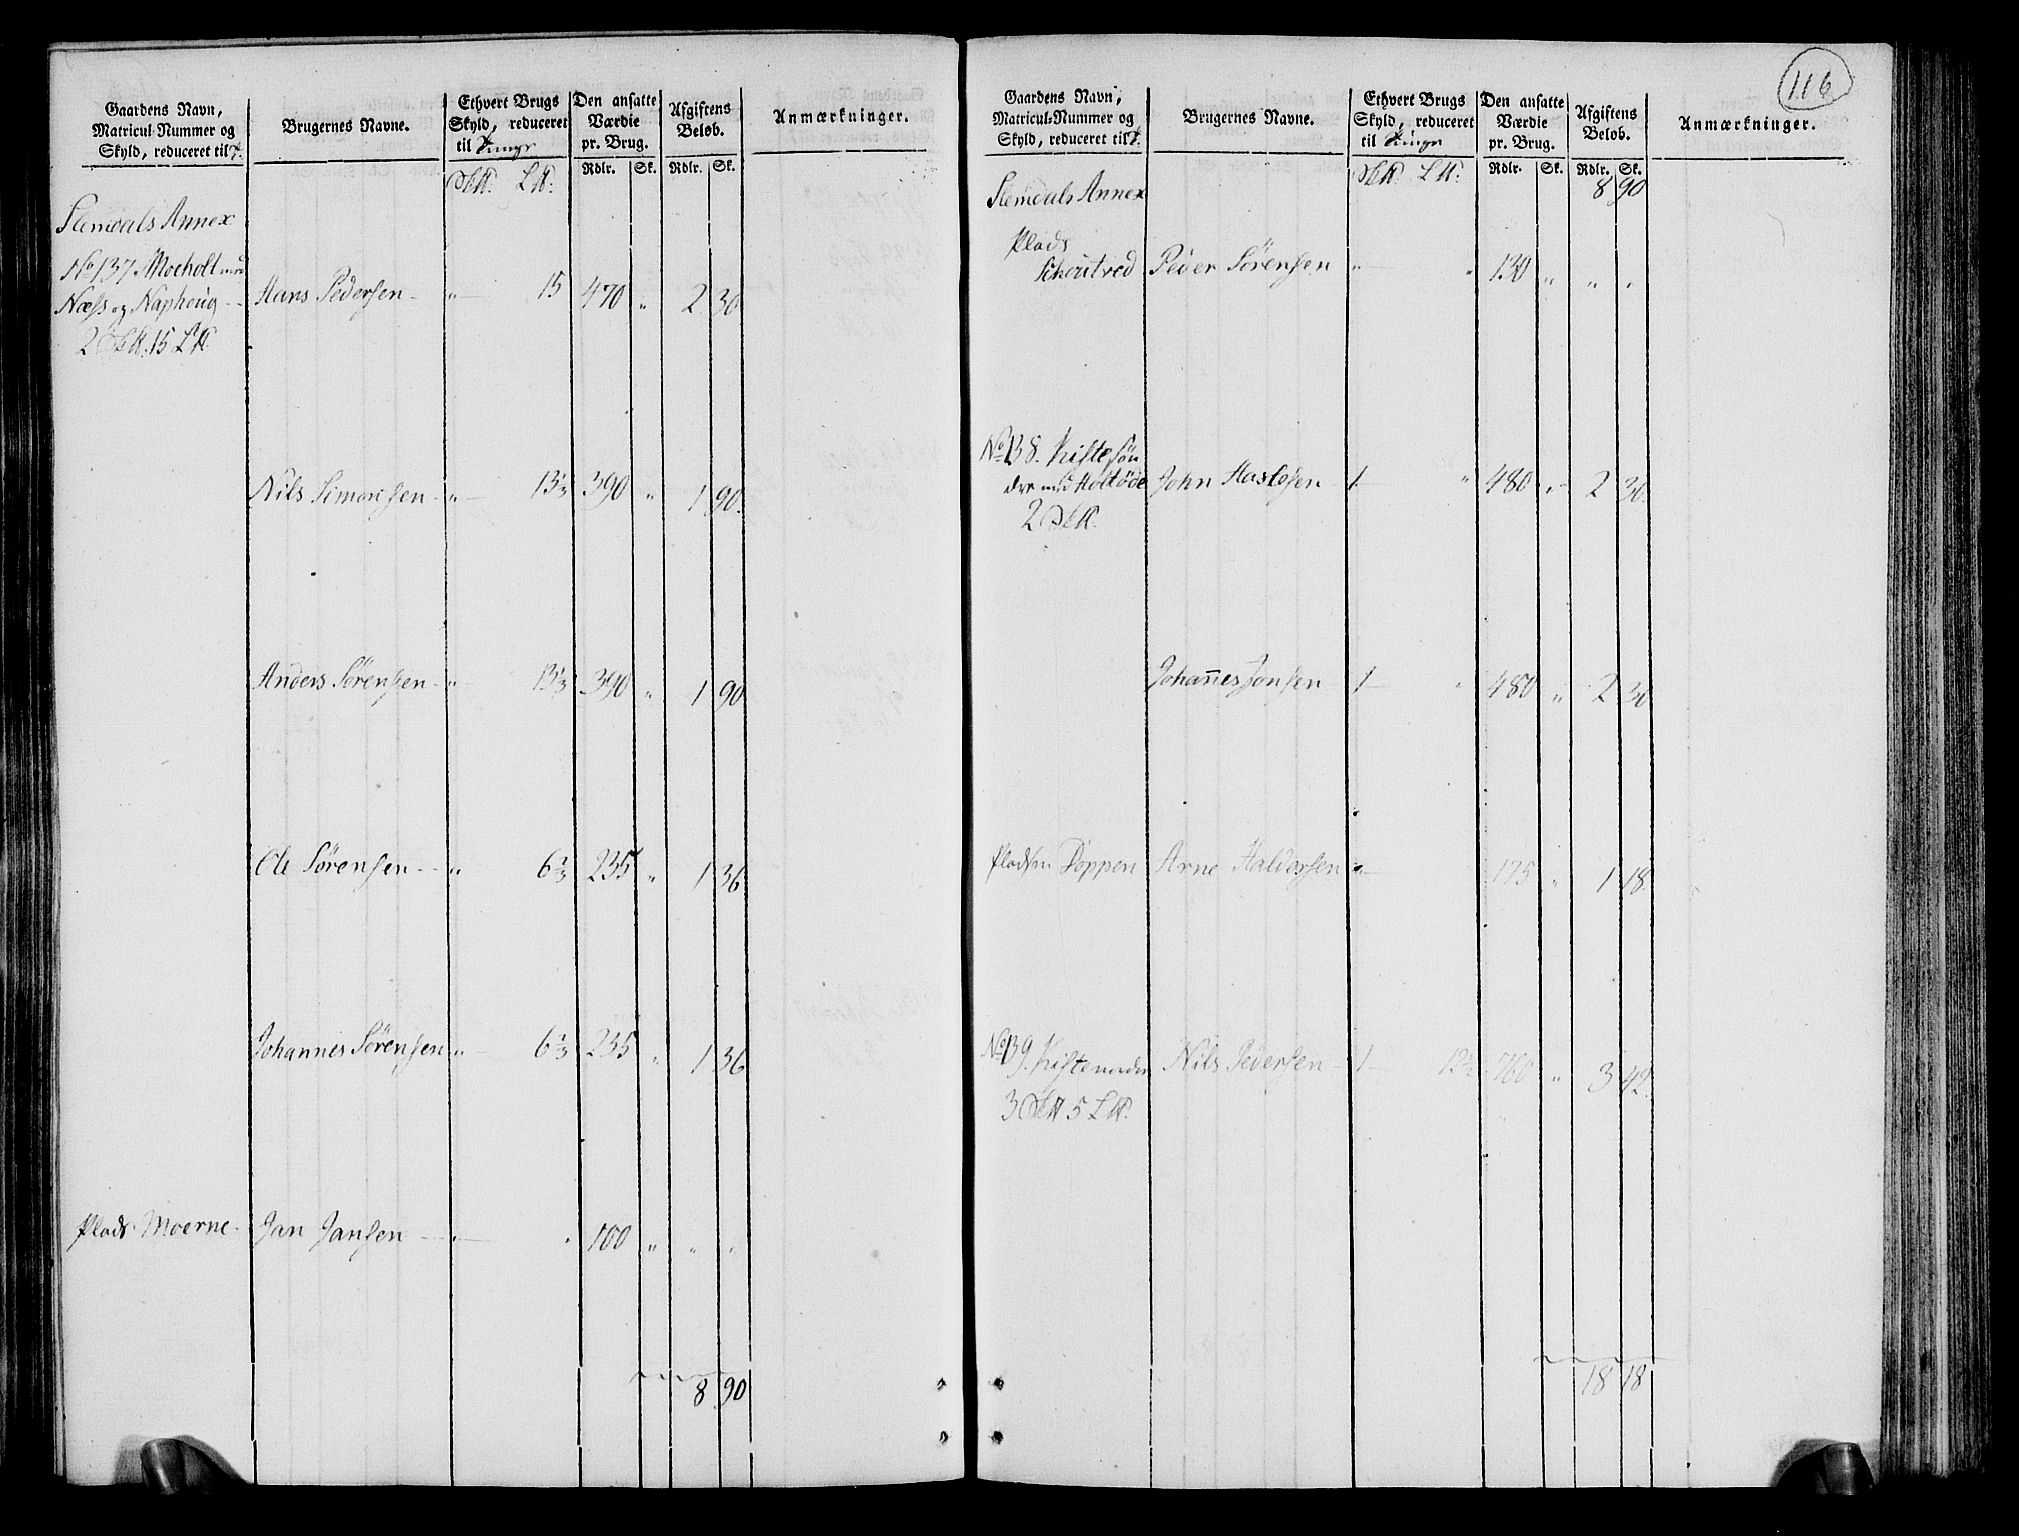 Gaardens Navn,
Matricul-Nummer og
Skyld, reduceret til
Brugernes Navne.
Ethvert Brugs
Skyld, reduceret
til Tunge
Den ansatte
Værdie
pr. Brug.
Rdlr. Sk.
Afgiftens
Beløb.
Rdlr. Sk.
Anmærkninger.
Slemdals Annex
No 137 Moeholt med Hans Pedersen - " 15 470 " 2 30
Næss og Naphoug
Nils Simonsen - " 13⅓ 390 " 1 90
Anders Sørensen - " 13⅓ 390 " 1 90
Ole Sørensen - " 6⅔ 235 " 1 36
Johannes Sørensen " 6⅔ 235 " 1 36
Plads Moerne - Jan Jansen - " " 100 " " "
8 90
116
Gaardens Navn,
Matricul-Nummer og
Skyld, reduceret til
Brugernes Navne.
Ethvert Brugs
Skyld, reduceret
til Tunge
Den ansatte
Værdie
pr. Brug.
Rdlr. Sk.
Afgiftens
Beløb.
Rdlr. Sk.
Anmærkninger.
Slemdals Annex 8 90
Plads
Peder Sørensen " " 130 " " "
No 138. Kiste søn
dre med John 1 " 480 " 2 30
Johannes Jonsen 1 " 480 " 2 30
Pladsen Doppen Arne Haldorsen " 175 " 1 18
No 139. Kiste nordre Nils Pedersen 1 12½ 760 " 3 42
18 18